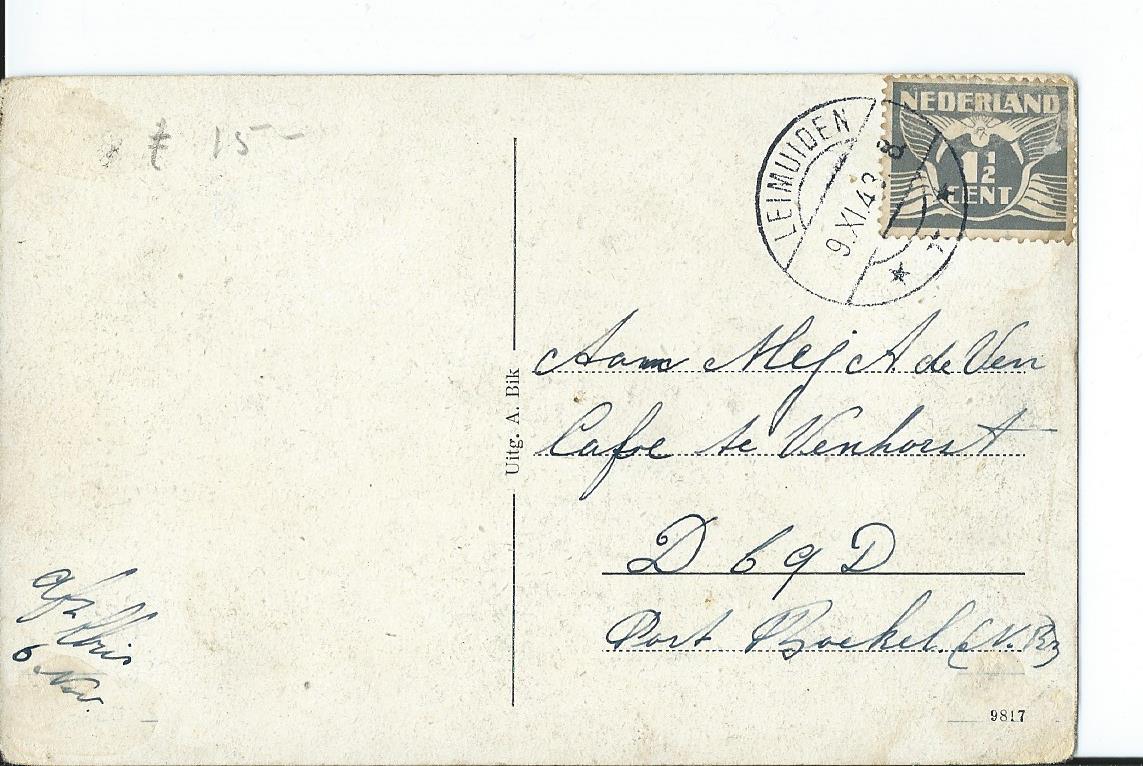 £ 15 -
NEDERLAND
1½
CENT
LEIMUIDEN
9.XI.43 8
Uitg. A. Bik
Aan Mej A. de Ven
Cafe te Venhorst
D 69 D
Post Boekel. (N. Br)
Afz
6 Nov.
9817